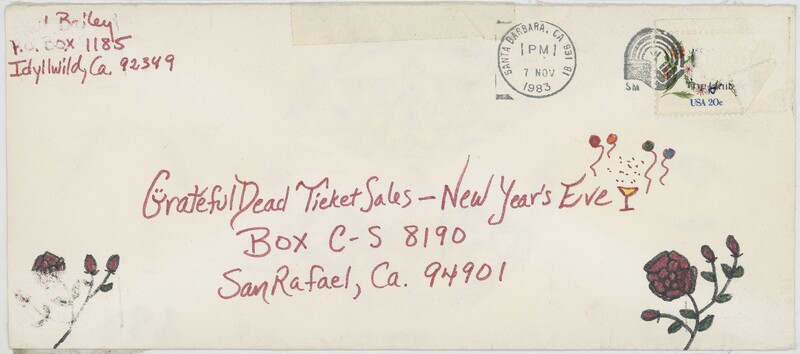 Bailey
P.O. BOX 1185
Idyllwild, Ca. 92349
SANTA BARBARA, CA 931
PM
7 NOV
1983
SM
USA 20c
Grateful Dead Ticket Sales – New Year's Eve
BOX C-S 8190
San Rafael, Ca. 94901